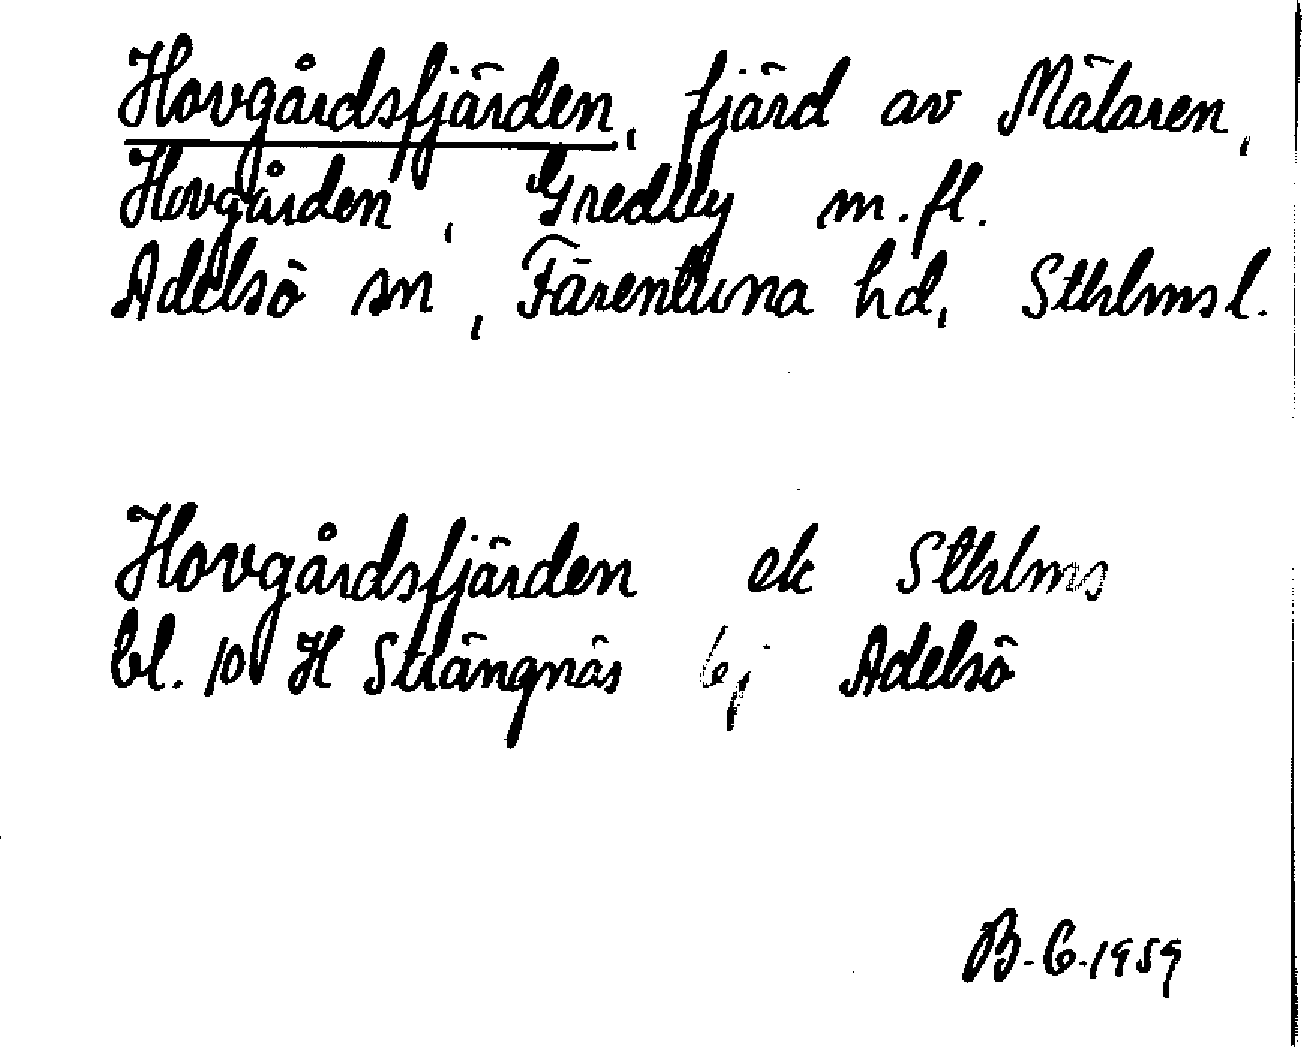 Hovgårdsfjärden, fjärd av Mälaren,
Hovgården, Gredby m.fl.
Adelsö sn, Färentuna hd, Sthlms l.
Hovgårdsfjärden ek Sthlms
bl. 10 H Strängnäs 6j Adelsö
B.G. 1959